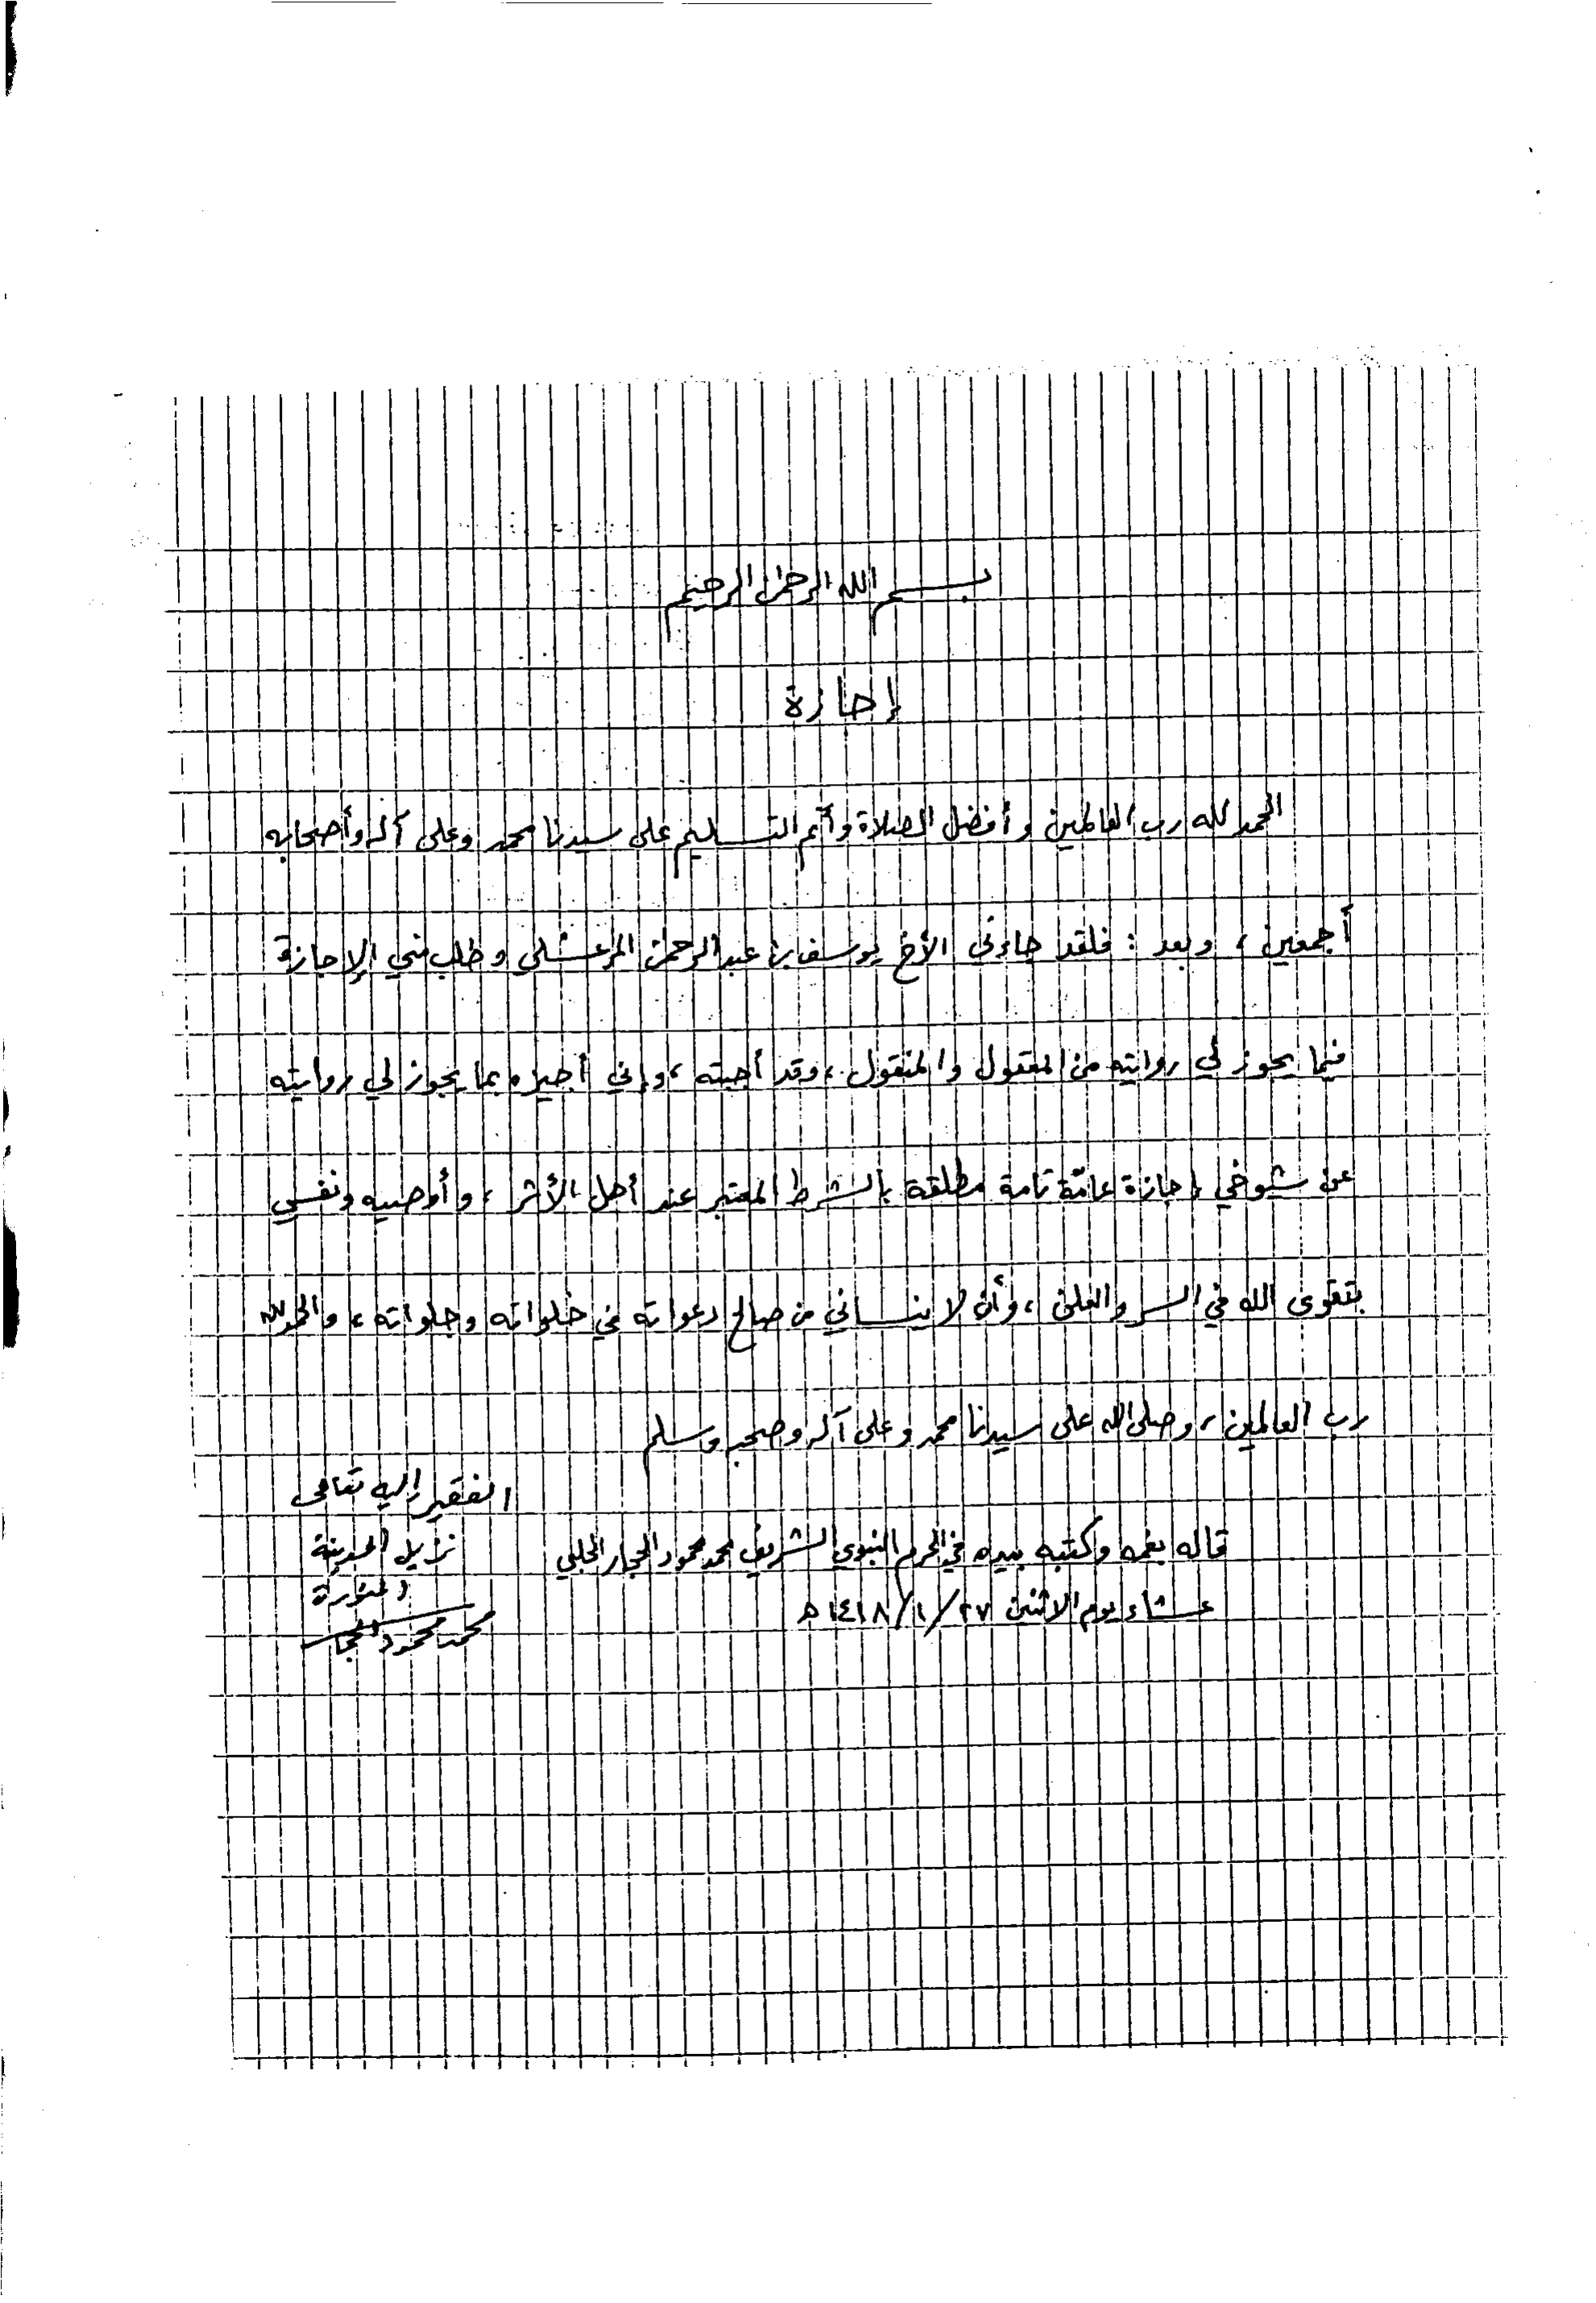 بسم الله الرحمن الرحيم
إجازة
الحمد لله رب العالمين وأفضل الصلاة وأتم التسليم على سيدنا محمد وعلى آله وأصحابه
أجمعين ، وبعد : فلقد جاءني الأخ يوسف بن عبد الرحمن المرعشلي وطلب مني الإجازة
فيما يجوز لي روايته من المعقول والمنقول ، وقد أجبته ، وإني أجيزه بما يجوز لي روايته
عن شيوخي إجازة عامّة تامة مطلقة بالشرط المعتبر عند أهل الأثر ، وأوصيه ونفسي
بتقوى الله في السر والعلن ، وأن لا ينساني من صالح دعواته في خلواته وجلواته ، والحمد لله
رب العالمين ، وصلى الله على سيدنا محمد وعلى آله وصحبه وسلم
قاله بفمه وكتبه بيده في الحرم النبوي الشريف محمد محمود الحجار الحلبي
عشاء يوم الاثنين ٢٧/١/١٤١٨ هـ
الفقير إليه تعالى
نزيل المدينة
المنورة
محمد محمود الحجار